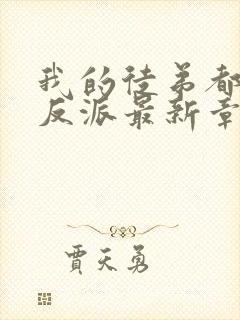 我的徒弟都
反派最新章
贾天勇